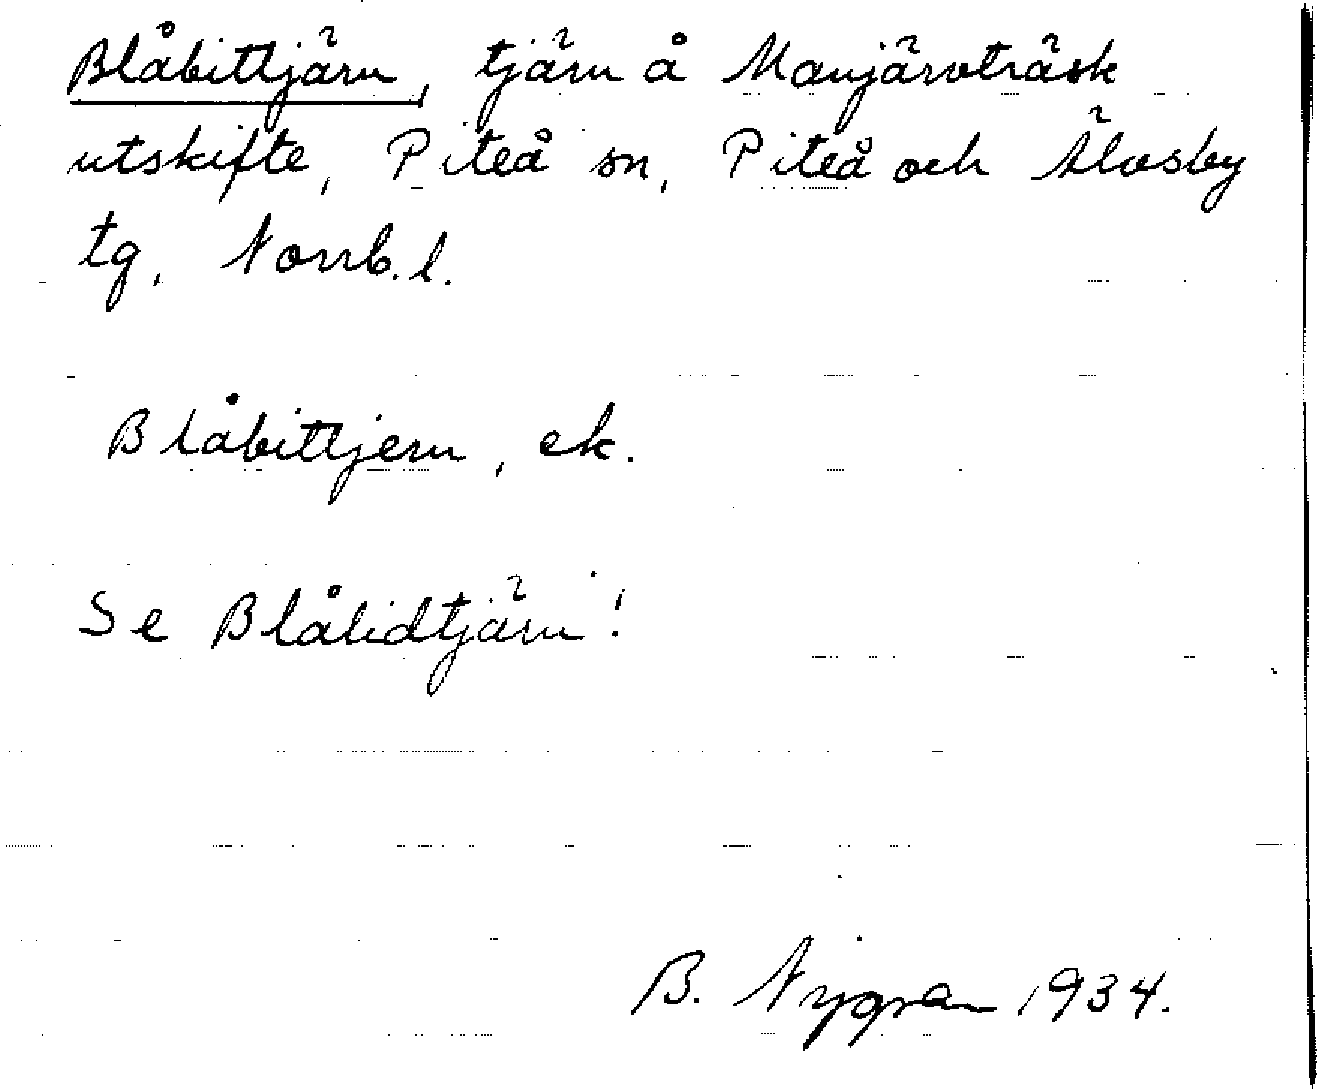 Blåbittjärn, tjärn å Manjärvträsk
utskifte, Piteå sn, Piteå och Älvsby
tg, Norrb.l.
Blåbittjern, ek.
Se Blålidtjärn!
B. Nygren 1934.